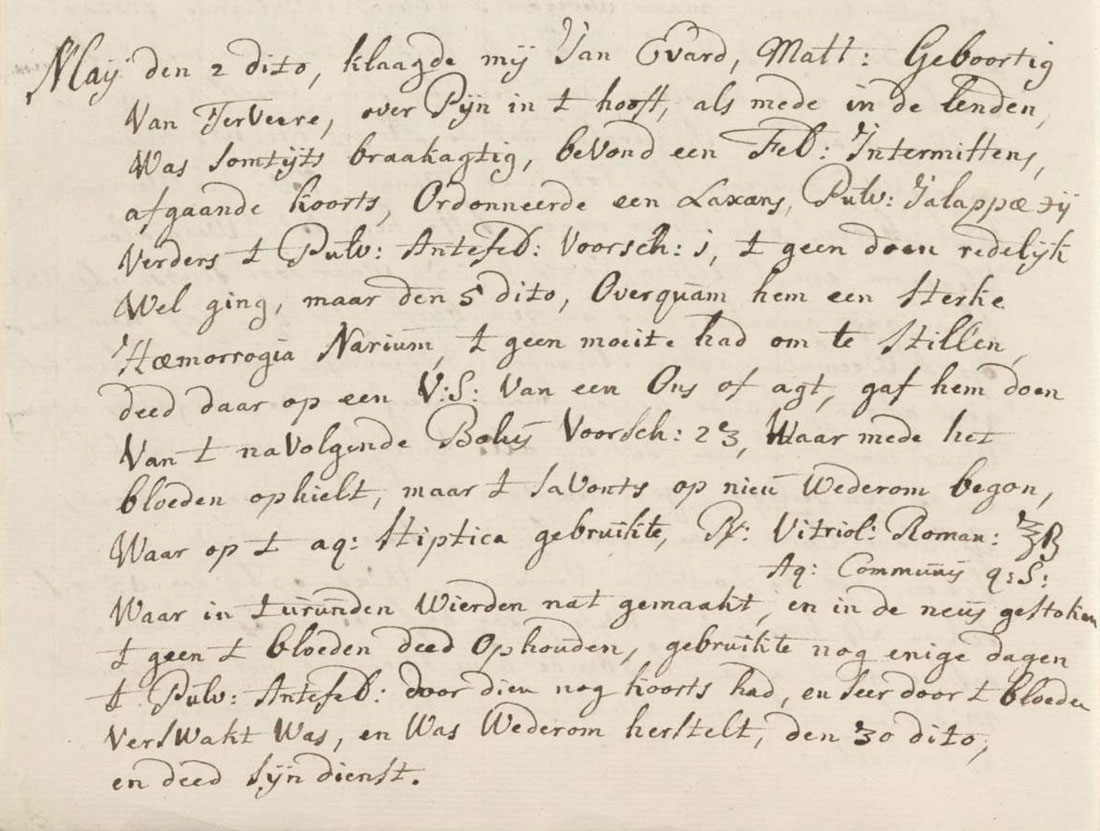 Maÿ den 2 dito, klaagde mij Jan Evard, Matt: Geboortig
Van TerVeere, over Pijn in t hooft, als mede in de lenden,
Was somtijts braakagtig, bevond een Feb: Intermittens,
afgaande koorts, Ordonneerde een Laxans, Pulv: Jalappæ ℈ij
Verders t Pulv: Antefeb: Voorsch: 1, t geen doen redelijk
Wel ging, maar den 5 dito, Overquam hem een sterke
Hæmorrogia Narium, t geen moeite had om te Stillen,
deed daar op een V:S: van een Ons of agt, gaf hem doen
Van t navolgende Bolus Voorsch: 2ʒ, Waar mede het
bloeden ophielt, maar t savonts op nieu Wederom begon,
Waar op t aq: Stiptica gebruikte, Rx: Vitriol: Roman: ℥ß
Aq: Communis q:S:
Waar in turunden Wierden nat gemaakt, en in de neus gestoken
t geen t bloeden deed Ophouden, gebruikte nog enige dagen
t Pulv: Antefeb: door dien nog koorts had, en seer door t bloeden
Verswakt Was, en Was Wederom herstelt, den 30 dito,
en deed sijn dienst.